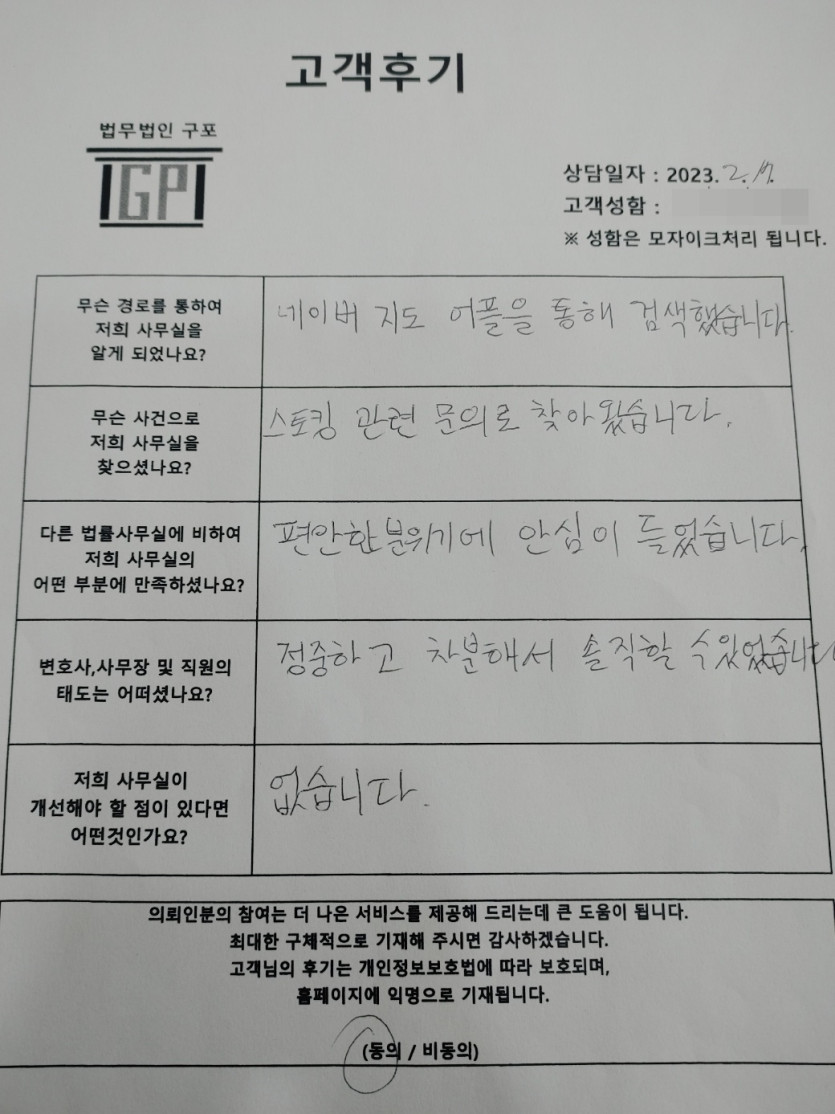 고객후기
법무법인 구포
GP
상담일자 : 2023. 2. 17.
고객성함 :
※ 성함은 모자이크처리 됩니다.
무슨 경로를 통하여
저희 사무실을
알게 되었나요?
네이버 지도 어플을 통해 검색했습니다.
무슨 사건으로
저희 사무실을
찾으셨나요?
스토킹 관련 문의로 찾아왔습니다.
다른 법률사무실에 비하여
저희 사무실의
어떤 부분에 만족하셨나요?
편안한 분위기에 안심이 들었습니다.
변호사,사무장 및 직원의
태도는 어떠셨나요?
정중하고 차분해서 솔직할 수 있었습니다
저희 사무실이
개선해야 할 점이 있다면
어떤것인가요?
없습니다.
의뢰인분의 참여는 더 나은 서비스를 제공해 드리는데 큰 도움이 됩니다.
최대한 구체적으로 기재해 주시면 감사하겠습니다.
고객님의 후기는 개인정보보호법에 따라 보호되며,
홈페이지에 익명으로 기재됩니다.
(동의 / 비동의)